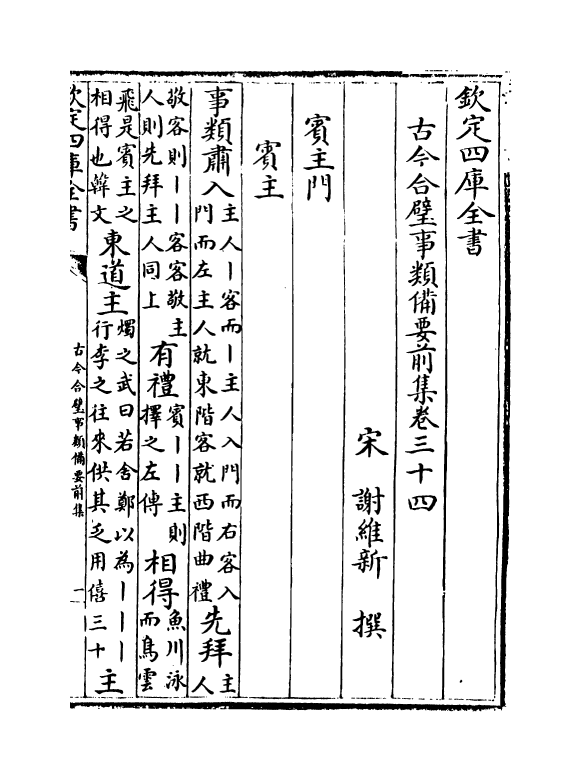 欽定四庫全書
古今合璧事類備要前集卷三十四
宋 謝維新 撰
賓主門
賓主
事類肅入主人丨客而丨主人入門而右客入門而左主人就東階客就西階曲禮先拜主人
敬客則丨丨客客敬主人則先拜主人同上有禮賓丨丨主則擇之左傳相得魚川泳而鳥雲
飛是賓主之相得也韓文東道主燭之武曰若舍鄭以為丨丨丨行李之往來供其乏用僖三十主
欽定四庫全書
古今合璧事類備要前集
一